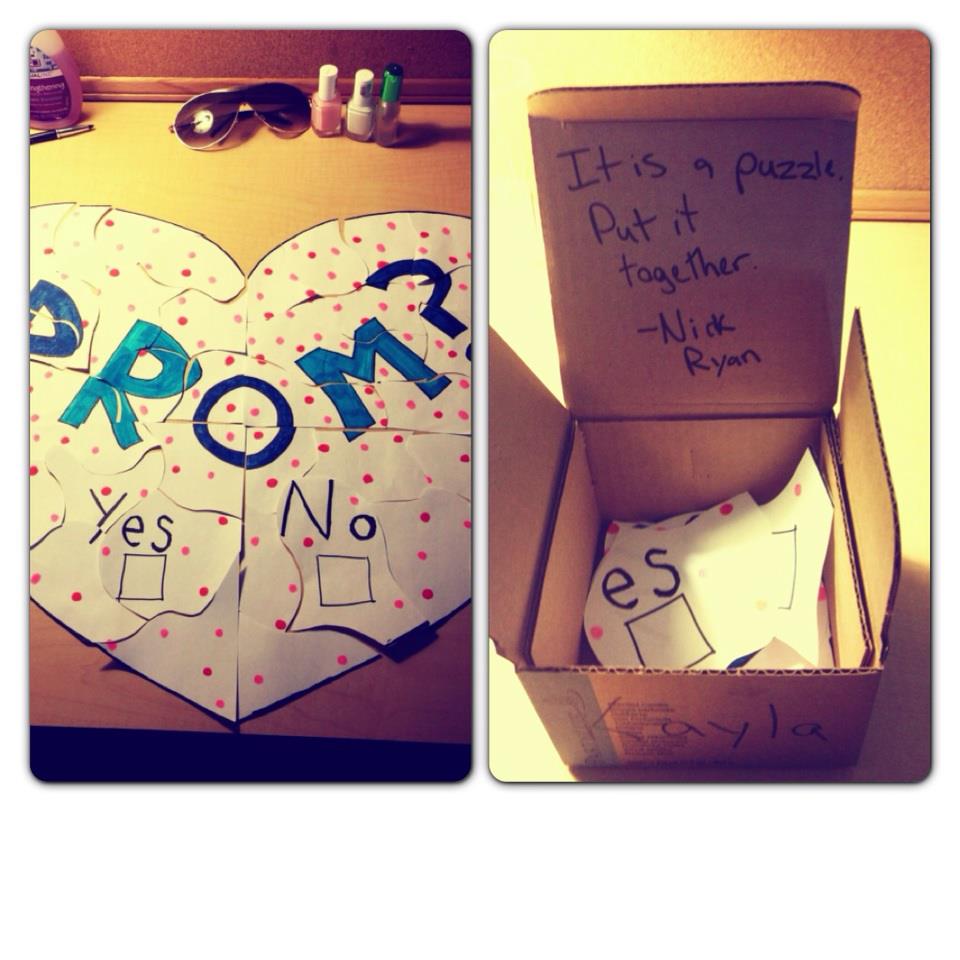 PROM?
Yes No
It is a puzzle.
Put it
together.
-Nick
Ryan
es
Kayla